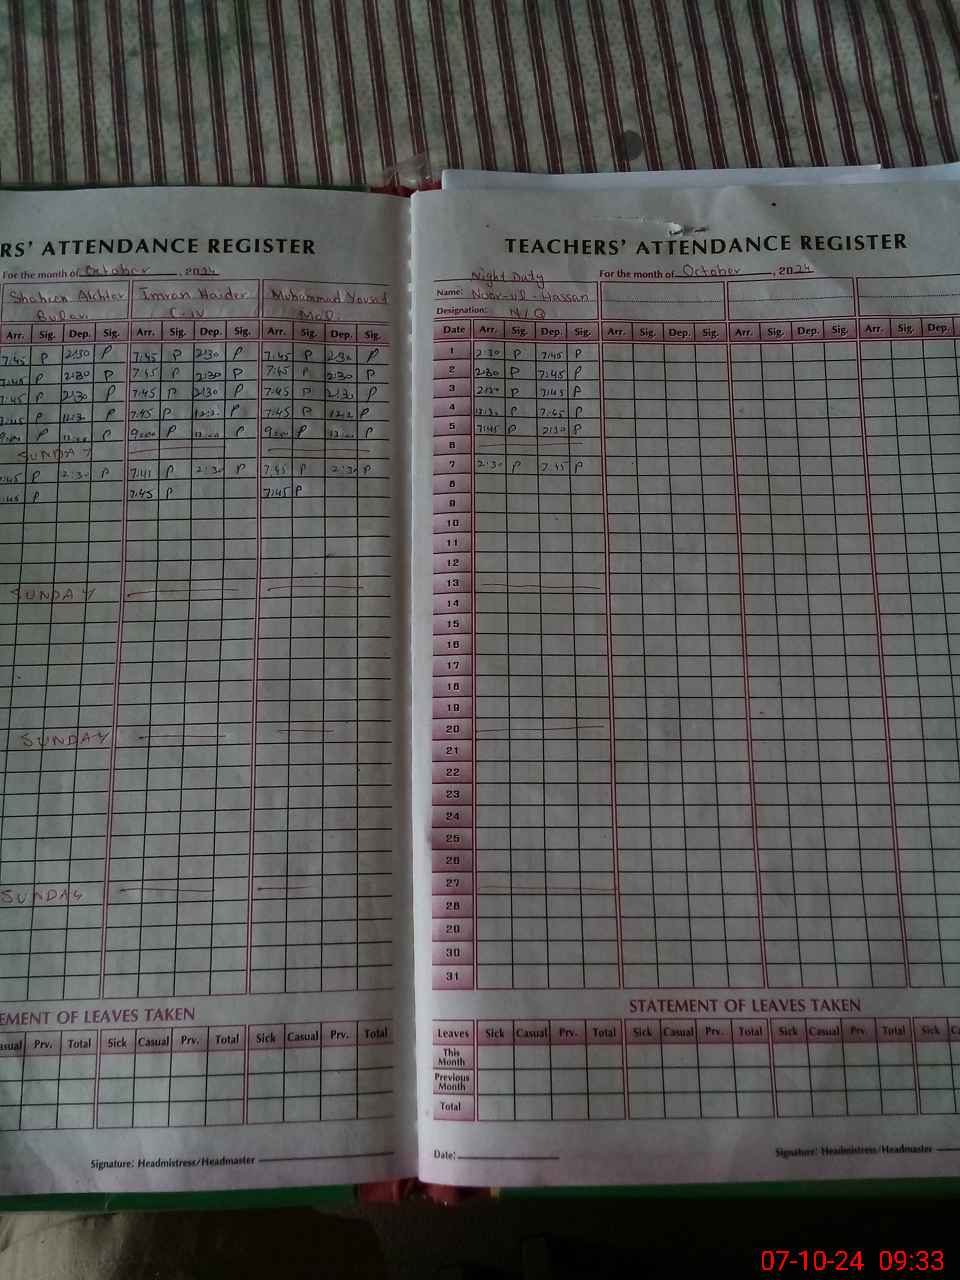 RS' ATTENDANCE REGISTER
For the month of October, 2024
Shaheen Akhter Imran Haider Muhammad Yousaf
C-IV Mali
Arr. Sig. Dep. Sig. Arr. Sig. Dep. Sig. Arr. Sig. Dep. Sig.
7:45 P 2:30 P 7:45 P 2:30 P 7:45 P 2:30 P
7:45 P 2:30 P 7:45 P 2:30 P 7:45 P 2:30 P
7:45 P 2:30 P 7:45 P 2:30 P 7:45 P 2:30 P
7:45 P P 7:45 P P 7:45 P P
9:00 P 12:00 P 9:00 P 12:00 P 9:00 P 12:00 P
SUNDAY
:45 P 2:30 P P 2:30 P 7:45 P 2:30 P
:45 P 7:45 P 7:45 P
SUNDAY
SUNDAY
SUNDAY
EMENT OF LEAVES TAKEN
asual Prv. Total Sick Casual Prv. Total Sick Casual Prv. Total
Signature: Headmistress/Headmaster
TEACHERS' ATTENDANCE REGISTER
Night Duty For the month of October, 2024
Name: Noor-ul-Hassan
Designation: N/Q
Date Arr. Sig. Dep. Sig. Arr. Sig. Dep. Sig. Arr. Sig. Dep. Sig. Arr. Sig. Dep.
1 2:30 P 7:45 P
2 2:30 P 7:45 P
3 2:30 P 7:45 P
4 P 7:45 P
5 7:45 P 2:30 P
6
7 2:30 P 7:45 P
8
9
10
11
12
13
14
15
16
17
18
19
20
21
22
23
24
25
26
27
28
29
30
31
STATEMENT OF LEAVES TAKEN
Leaves Sick Casual Prv. Total Sick Casual Prv. Total Sick Casual Prv. Total Sick C
This Month
Previous Month
Total
Date: Signature: Headmistress/Headmaster
07-10-24 09:33